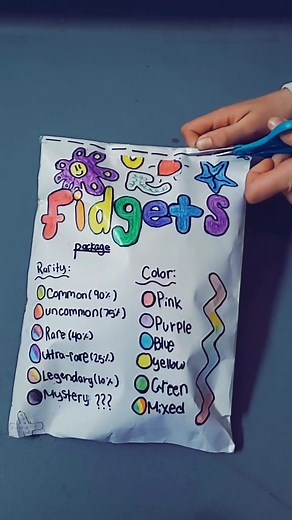 Fidgets
package
Rarity:
Common (90%)
uncommon (75%)
Rare (40%)
Ultra-rare (25%)
Legendary (10%)
Mystery ???
Color:
Pink
Purple
Blue
yellow
Green
Mixed